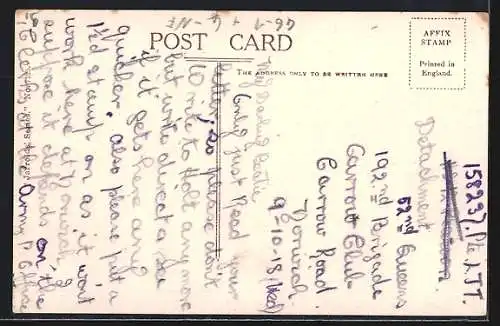 POST CARD
THE ADDRESS ONLY TO BE WRITTEN HERE
AFFIX
STAMP
Printed in
England.
158237. Pte. L. J. T.
Detachment
52nd Queens
192nd Brigade
Carrow Club
Carrow Road.
Norwich
9-10-18 (Wed)
My Darling
Only just Read your
letter, so please don't
write to Holt any more
but write direct & see
if it gets here any
quicker. also please put a
1½d stamp on as it won't
work here at Norwich
suppose it depends on the
Army P. Office